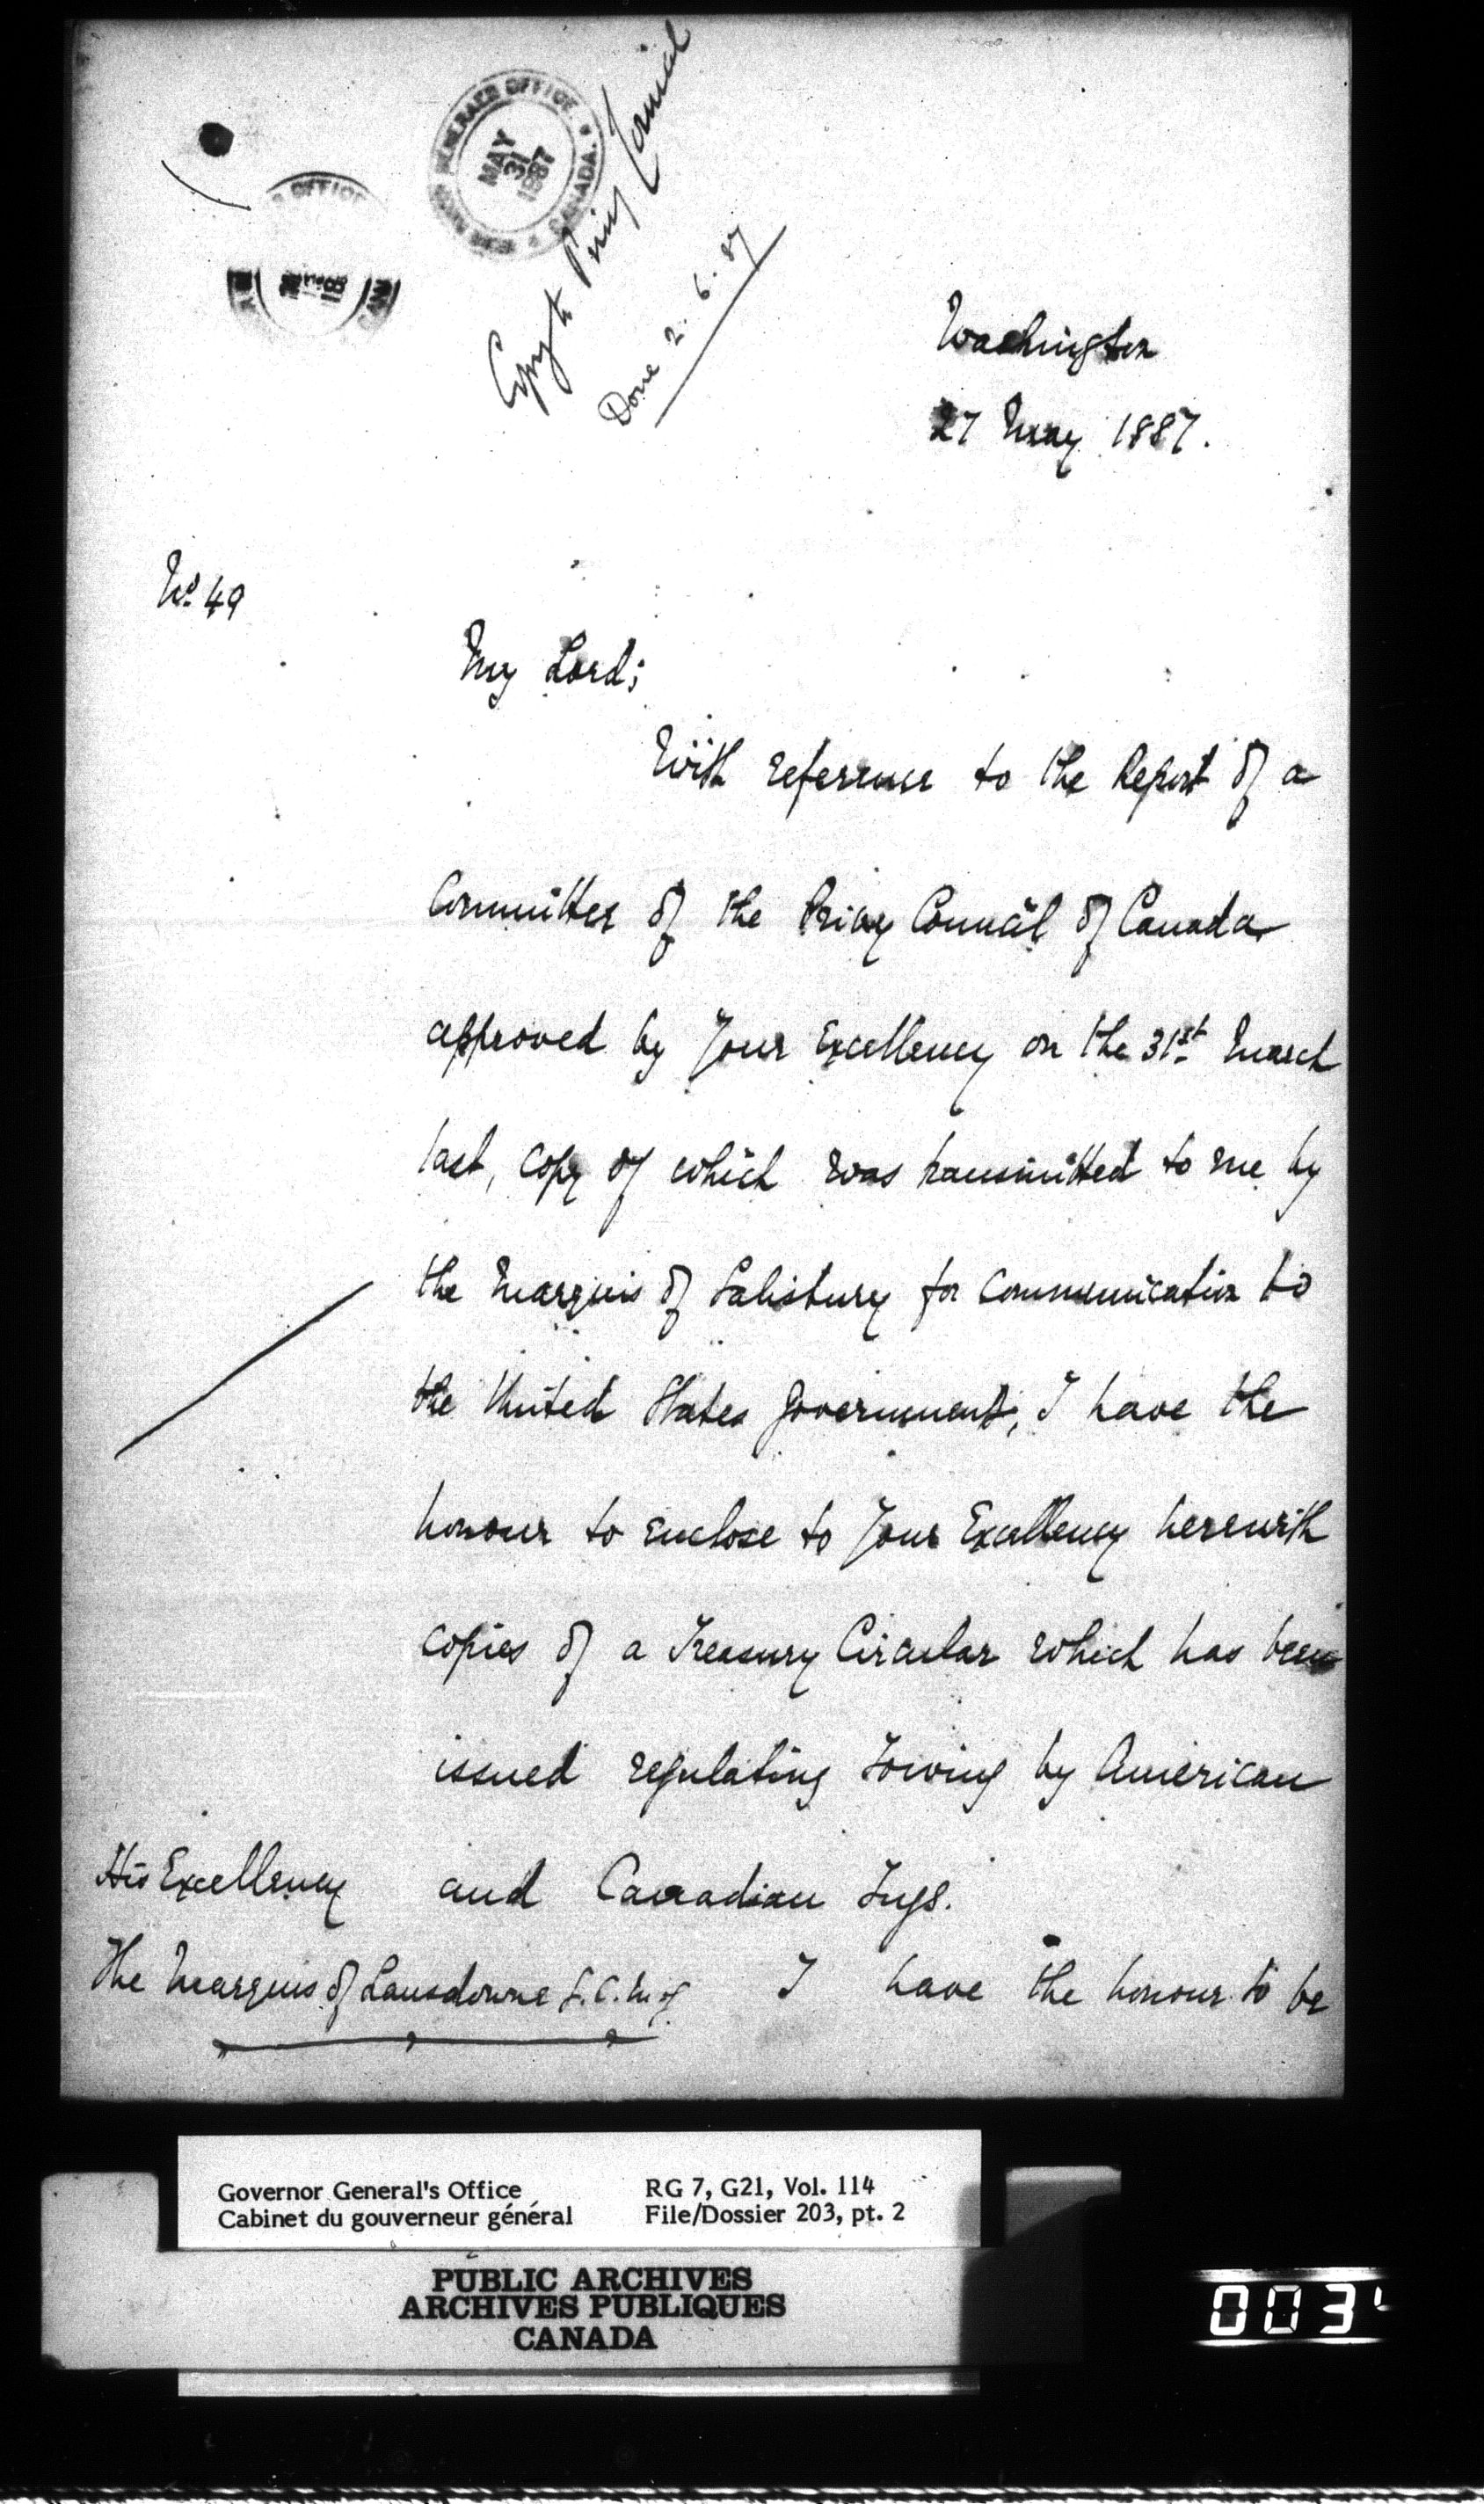 GOVERNOR GENERAL'S OFFICE
MAY
31
1887
CANADA.
OFFICE
Copy to Privy Council
Done 2.6.87
Washington
27 May 1887.
No. 49
My Lord;
With reference to the Report of a
Committee of the Privy Council of Canada
approved by Your Excellency on the 31st March
last, copy of which was transmitted to me by
the Marquis of Salisbury for communication to
the United States Government; I have the
honour to enclose to Your Excellency herewith
copies of a Treasury Circular which has been
issued regulating Towing by American
and Canadian Tugs.
I have the honour to be
His Excellency
The Marquis of Lansdowne G.C.M.G.
Governor General's Office
Cabinet du gouverneur général
RG 7, G21, Vol. 114
File/Dossier 203, pt. 2
PUBLIC ARCHIVES
ARCHIVES PUBLIQUES
CANADA
003